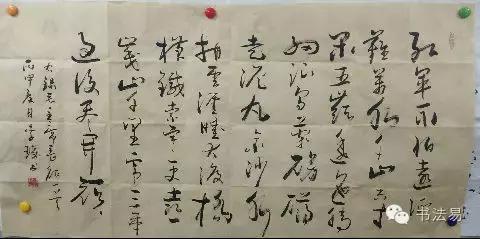 红军不怕远征
难万水千山只等
闲五岭逶迤腾
细浪乌蒙磅礴
走泥丸金沙水
拍云崖暖大渡桥
横铁索寒更喜
岷山千里雪三军
过后尽开颜
右录毛主席长征一首
丙申夏月李书
书法易